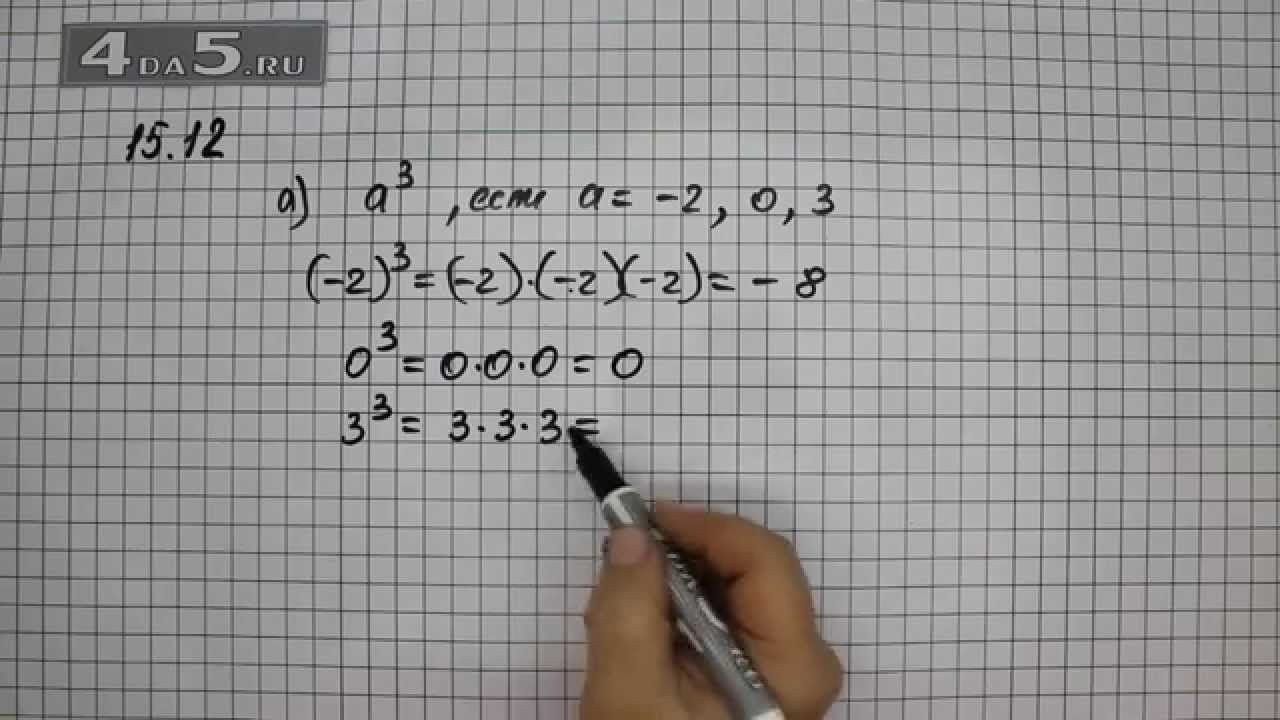 4DA5.RU
15.12
а) a³, если a = -2, 0, 3
(-2)³ = (-2)·(-2)(-2) = - 8
0³ = 0·0·0 = 0
3³ = 3·3·3 =